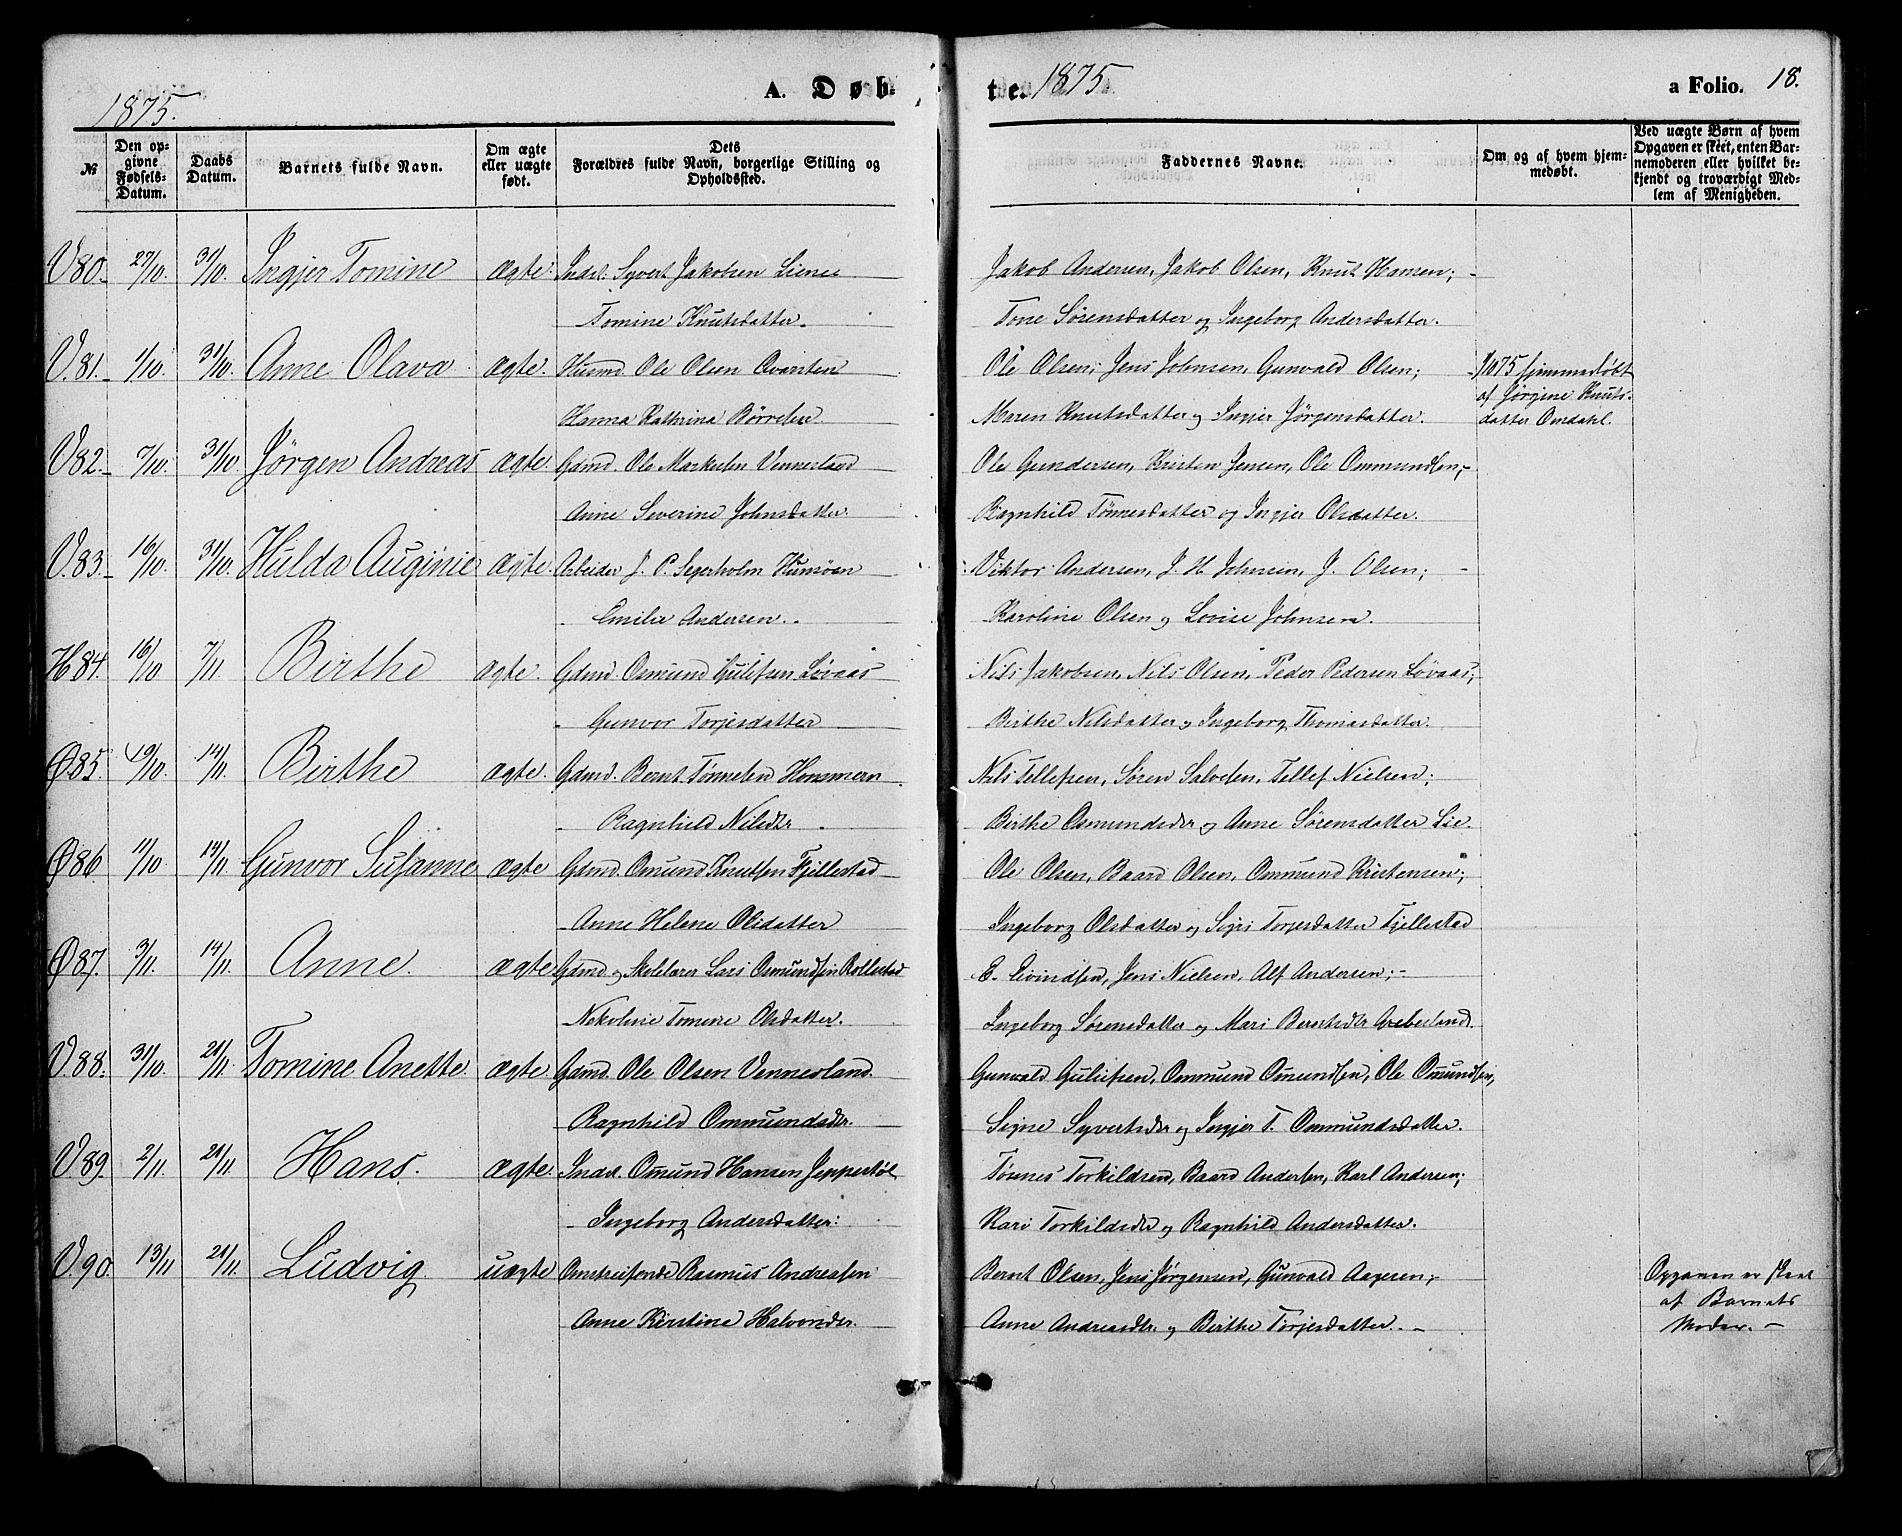 1875.
A. Døb-
te. 1875
a Folio. 18.
№
Den op-
givne
Fødsels-
Datum.
Daabs
Datum.
Barnets fulde Navn.
Om ægte
eller uægte
født.
Dets
Forældres fulde Navn, borgerlige Stilling og
Opholdssted.
Faddernes Navne.
Om og af hvem hjem-
medøbt.
Ved uægte Børn af hvem
Opgaven er skeet, enten Bar-
nemoderen eller hvilket be-
kjendt og troværdigt Med-
lem af Menigheden.
V80. 27/10. 31/10. Ingjer Tomine ægte. Inds. Syvert Jakobsen Lienes
Tomine Knutsdatter.
Jakob Andersen, Jakob Olsen, Knut Hansen;
Tone Sørensdatter og Ingeborg Andersdatter.
V.81. 1/10. 31/10. Anne Olava ægte. Husmd. Ole Olsen Qvarsten
Hanna Kathrina Børresen.
Ole Olsen, Jens Johnsen, Gunvald Olsen;
Maren Knutsdatter og Ingjer Jørgensdatter.
hjemmedøbt
af Jørgine Knuts-
datter Omdahl.
V82. 7/10. 31/10. Jørgen Andreas ægte. Gdmd. Ole Markusen Vennesland
Anne Severine Johnsdatter.
Ole Gundersen, Kristen Jensen, Ole Ommundsen;
Ragnhild Tønnesdatter og Ingjer Olsdatter.
V.83. 16/10. 31/10. Hulda Auginie ægte. Arbeider J. P. Segerholm Hunsøen
Emilia Andersen.
Viktor Andersen, J. H. Johnsen, J. Olsen;
Karoline Olsen og Lovise Johnsen.
H84. 16/10 7/11. Birthe ægte. Gdmd. Osmund Gulufsen Løvaas
Gunvor Torjesdatter
Nils Jakobsen, Nils Olsen, Peder Pedersen Løvaas;
Birthe Nilsdatter og Ingeborg Thomasdatter.
Ø85. 19/10. 14/11. Birthe ægte. Gdmd. Bernt Tønnesen Honnemyrn
Ragnhild Nilsdtr
Nils Tellefsen, Søren Salvesen, Tellef Nielsen;
Birthe Osmundsdtr og Anne Sørensdatter Lie.
Ø86. 11/10. 14/11. Gunvor Susanne ægte Gdmd. Omund Knutsen Fjellestad
Anne Helene Olsdatter
Ole Olsen, Baard Olsen, Ommund Kristensen;
Ingeborg Olsdatter og Sigri Torjesdatter Fjellestad
Ø87. 3/11. 14/11. Anne. ægte Gdmd. og Skolelærer Lars Osmundsen Rollestad
Nikoline Tomine Olsdatter.
E. Eivindsen, Jens Nielsen, Alf Andersen;
Ingeborg Sørensdatter og Mari Berntsdtr
V.88. 31/10. 21/11. Tomine Anette. ægte Gdmd. Ole Olsen Vennesland.
Ragnhild Ommundsdtr.
Gunvald Gulufsen, Ommund Omundsen, Ole Omundsen,
Signe Syvertsdtr og Ingjer T. Ommundsdatter.
V.89. 2/11. 21/11. Hans. ægte. Inds. Omund Hansen Jeppestøl
Ingeborg Andersdatter.
Tønnes Torkildsen, Baard Andersen, Karl Andersen;
Kari Torkildsdtr og Ragnhild Andersdatter.
V.90. 13/11 21/11. Ludvig. uægte Omstreifende Rasmus Andreasen
Anne Kirstine Halvorsdtr.
Bernt Olsen, Jens Jørgensen, Gunvald Aagesen;
Anne Andreasdtr. og Birthe Torjesdatter.
Opgaven er skeet
af Barnets
Moder.